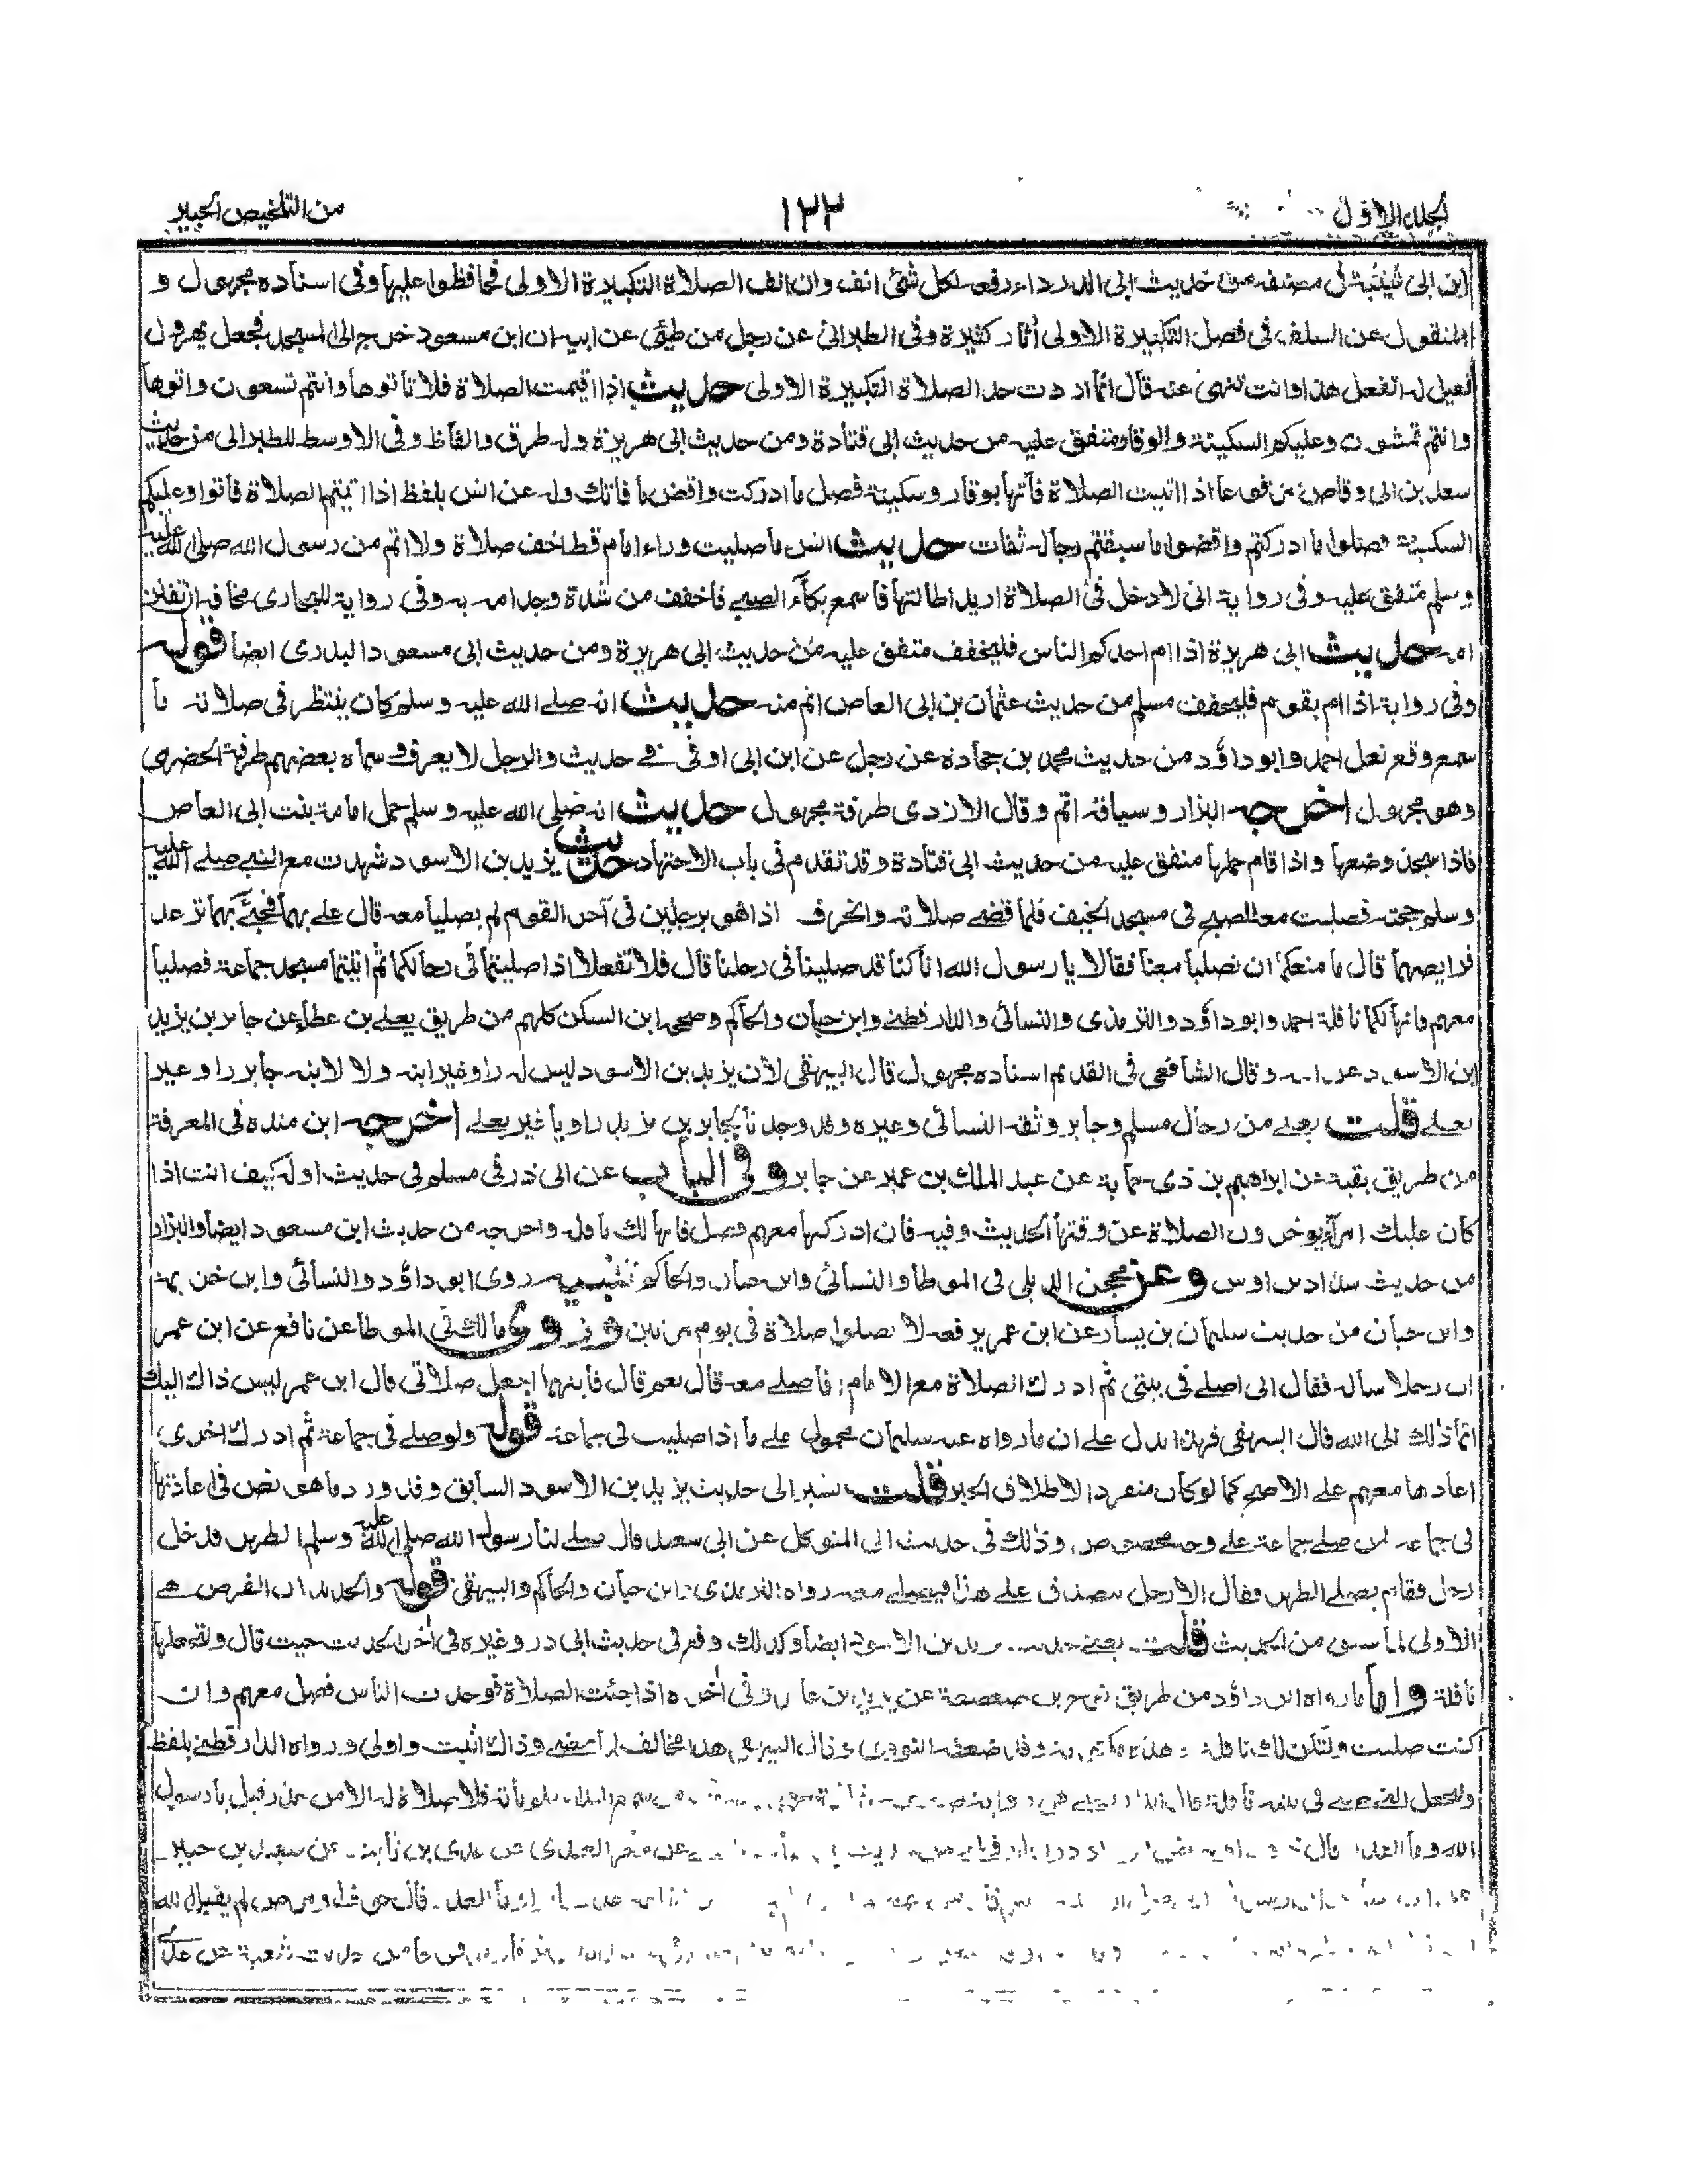 الجلد الاول ١٢٢ من التلخيص الحبير
ابن ابى شيبة في مصنفه من حديث ابى الدرداء رفعه لكل شئ انف وان انف الصلاة التكبيرة الاولى فحافظوا عليها وفى اسناده مجهول و
المنقول عن السلف فى فضل التكبيرة الاولى أثار كثيرة وفى الطبرانى عن رجل من طيّئ عن ابيه ان ابن مسعود خرج الى المسجد فجعل يهرول
فقيل له اتفعل هذا وانت تنهى عنه قال انما اردت حد الصلاة التكبيرة الاولى حديث اذا اقيمت الصلاة فلا تأتوها وانتم تسعون واتوها
وانتم تمشون وعليكم السكينة والوقار متفق عليه من حديث ابى قتادة ومن حديث ابى هريرة وله طرق والفاظ وفى الاوسط للطبرانى من حديث
سعد بن ابى وقاص مرفوعا اذا اتيت الصلاة فأتها بوقار وسكينة فصل ما ادركت واقض ما فاتك وله عن انس بلفظ اذا اتيتم الصلاة فأتوا وعليكم
السكينة فصلوا ما ادركتم واقضوا ما سبقتم رجاله ثقات حديث انس ما صليت وراء امام قط اخف صلاة ولا اتم من رسول الله صلى الله عليه
وسلم متفق عليه وفى رواية انى لادخل فى الصلاة اريد اطالتها فاسمع بكآء الصبى فاخفف من شدة وجد امه به وفى رواية للبخارى مخافة ان تفتتن
امه حديث ابى هريرة اذا ام احدكم الناس فليخفف متفق عليه من حديث ابى هريرة ومن حديث ابى مسعود البدرى ايضا قوله
وفى رواية اذا ام بقوم فليخفف مسلم من حديث عثمان بن ابى العاص اتم منه حديث انه صلى الله عليه وسلم كان ينتظر فى صلاته ما
سمع وقع نعل احمد وابو داؤد من حديث محمد بن جحادة عن رجل عن ابن ابى اوفى فى حديث والرجل لا يعرف وسماه بعضهم طرفة الحضرمى
وهو مجهول اخرجه البزار وسياقه اتم وقال الازدى طرفة مجهول حديث انه صلى الله عليه وسلم حمل امامة بنت ابى العاص
فاذا سجد وضعها واذا قام حملها متفق عليه من حديث ابى قتادة وقد تقدم فى باب الاجتهاد حديث يزيد بن الاسود شهدت مع النبى صلى الله عليه
وسلم حجته فصليت معه الصبح فى مسجد الخيف فلما قضى صلاته وانحرف اذا هو برجلين فى آخر القوم لم يصليا معه قال على بهما فجئ بهما ترعد
فرايصهما قال ما منعكما ان تصليا معنا فقالا يا رسول الله انا كنا قد صلينا فى رحلنا قال فلا تفعلا اذا صليتما فى رحالكما ثم اتيتما مسجد جماعة فصليا
معهم فانها لكما نافلة احمد وابو داؤد والترمذى والنسائى والدارقطنى وابن حبان والحاكم وصححه ابن السكن كلهم من طريق يعلى بن عطاء عن جابر بن يزيد
بن الاسود عن ابيه وقال الشافعى فى القديم اسناده مجهول قال البيهقى لان يزيد بن الاسود ليس له راو غير ابنه ولا لابنه جابر راو غير
يعلى قلت يعلى من رجال مسلم وجابر وثقه النسائى وغيره وقد وجدنا لجابر بن يزيد راويا غير يعلى اخرجه ابن منده فى المعرفة
من طريق بقية عن ابراهيم بن ذى حماية عن عبد الملك بن عمير عن جابر وفى الباب عن ابى ذر فى مسلم فى حديث اوله كيف انت اذا
كان عليك امرآء يوخرون الصلاة عن وقتها الحديث وفيه فان ادركتها معهم فصل فانها لك نافلة واخرجه من حديث ابن مسعود ايضا والبزار
من حديث شداد بن اوس وعن محجن الديلى فى الموطأ والنسائى وابن حبان والحاكم تنبيه روى ابو داؤد والنسائى وابن خزيمة
وابن حبان من حديث سليمان بن يسار عن ابن عمر يرفعه لا تصلوا صلاة فى يوم مرتين وروى مالك فى الموطأ عن نافع عن ابن عمر
ان رجلا ساله فقال انى اصلى فى بيتى ثم ادرك الصلاة مع الامام افاصلى معه قال نعم قال فايتهما اجعل صلاتى قال ابن عمر ليس ذاك اليك
انما ذلك الى الله قال البيهقى فهذا يدل على ان ما رواه عنه سليمان محمول على ما اذا صليت فى جماعة قوله ولو صلى فى جماعة ثم ادرك اخرى
اعادها معهم على الاصح كما لو كان منفردا لاطلاق الخبر قلت يشير الى حديث يزيد بن الاسود السابق وقد ورد ما هو نص فى اعادتها
فى جماعة لمن صلى جماعة على وجه مخصوص وذلك فى حديث ابى المتوكل عن ابى سعيد قال صلى لنا رسول الله صلى الله عليه وسلم الظهر فدخل
رجل وقام يصلى الظهر فقال الا رجل يتصدق على هذا فيصلى معه رواه الترمذى وابن حبان والحاكم والبيهقى قوله والجديد ان الفرض هى
الاولى لما سبق من الحديث قلت يعنى حديث يزيد بن الاسود ايضا وكذلك وقع فى حديث ابى ذر وغيره فى أخر الحديث حيث قال ولتجعلها
نافلة واما ما رواه ابو داؤد من طريق نوح بن صعصعة عن يزيد بن عامر وفى أخره اذا جئت الصلاة فوجدت الناس فصل معهم وان
كنت صليت ولتكن لك نافلة وهذه مكتوبة وقد ضعفه النووى وقال البيهقى هذا مخالف لما مضى وذاك اثبت واولى ورواه الدارقطنى بلفظ
وليجعل التى صلى فى بيته نافلة قال الدارقطنى هى رواية ضعيفة سمع النداء فلم يأته فلا صلاة له الا من عذر قيل يا رسول
الله وما العذر قال عن مغراء العبدى عن عدى بن ثابت عن سعيد بن جبير
وما العذر قال خوف او مرض لم يقبل الله
من حديث شعبة عن عدى